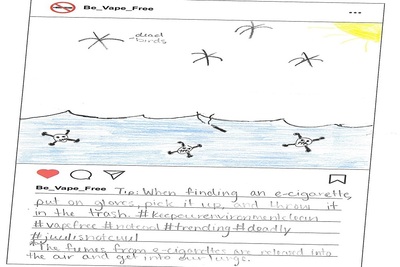 Be_Vape_Free
-dead
birds
Be_Vape_Free Tip: When finding an e-cigarette,
put on gloves, pick it up, and throw it
in the trash. #keepourenvironmentclean
#vapefree #nctdead #trending #deadly
#juulisnotcuul
*The fumes from e-cigarettes are released into
the air and get into our lungs.